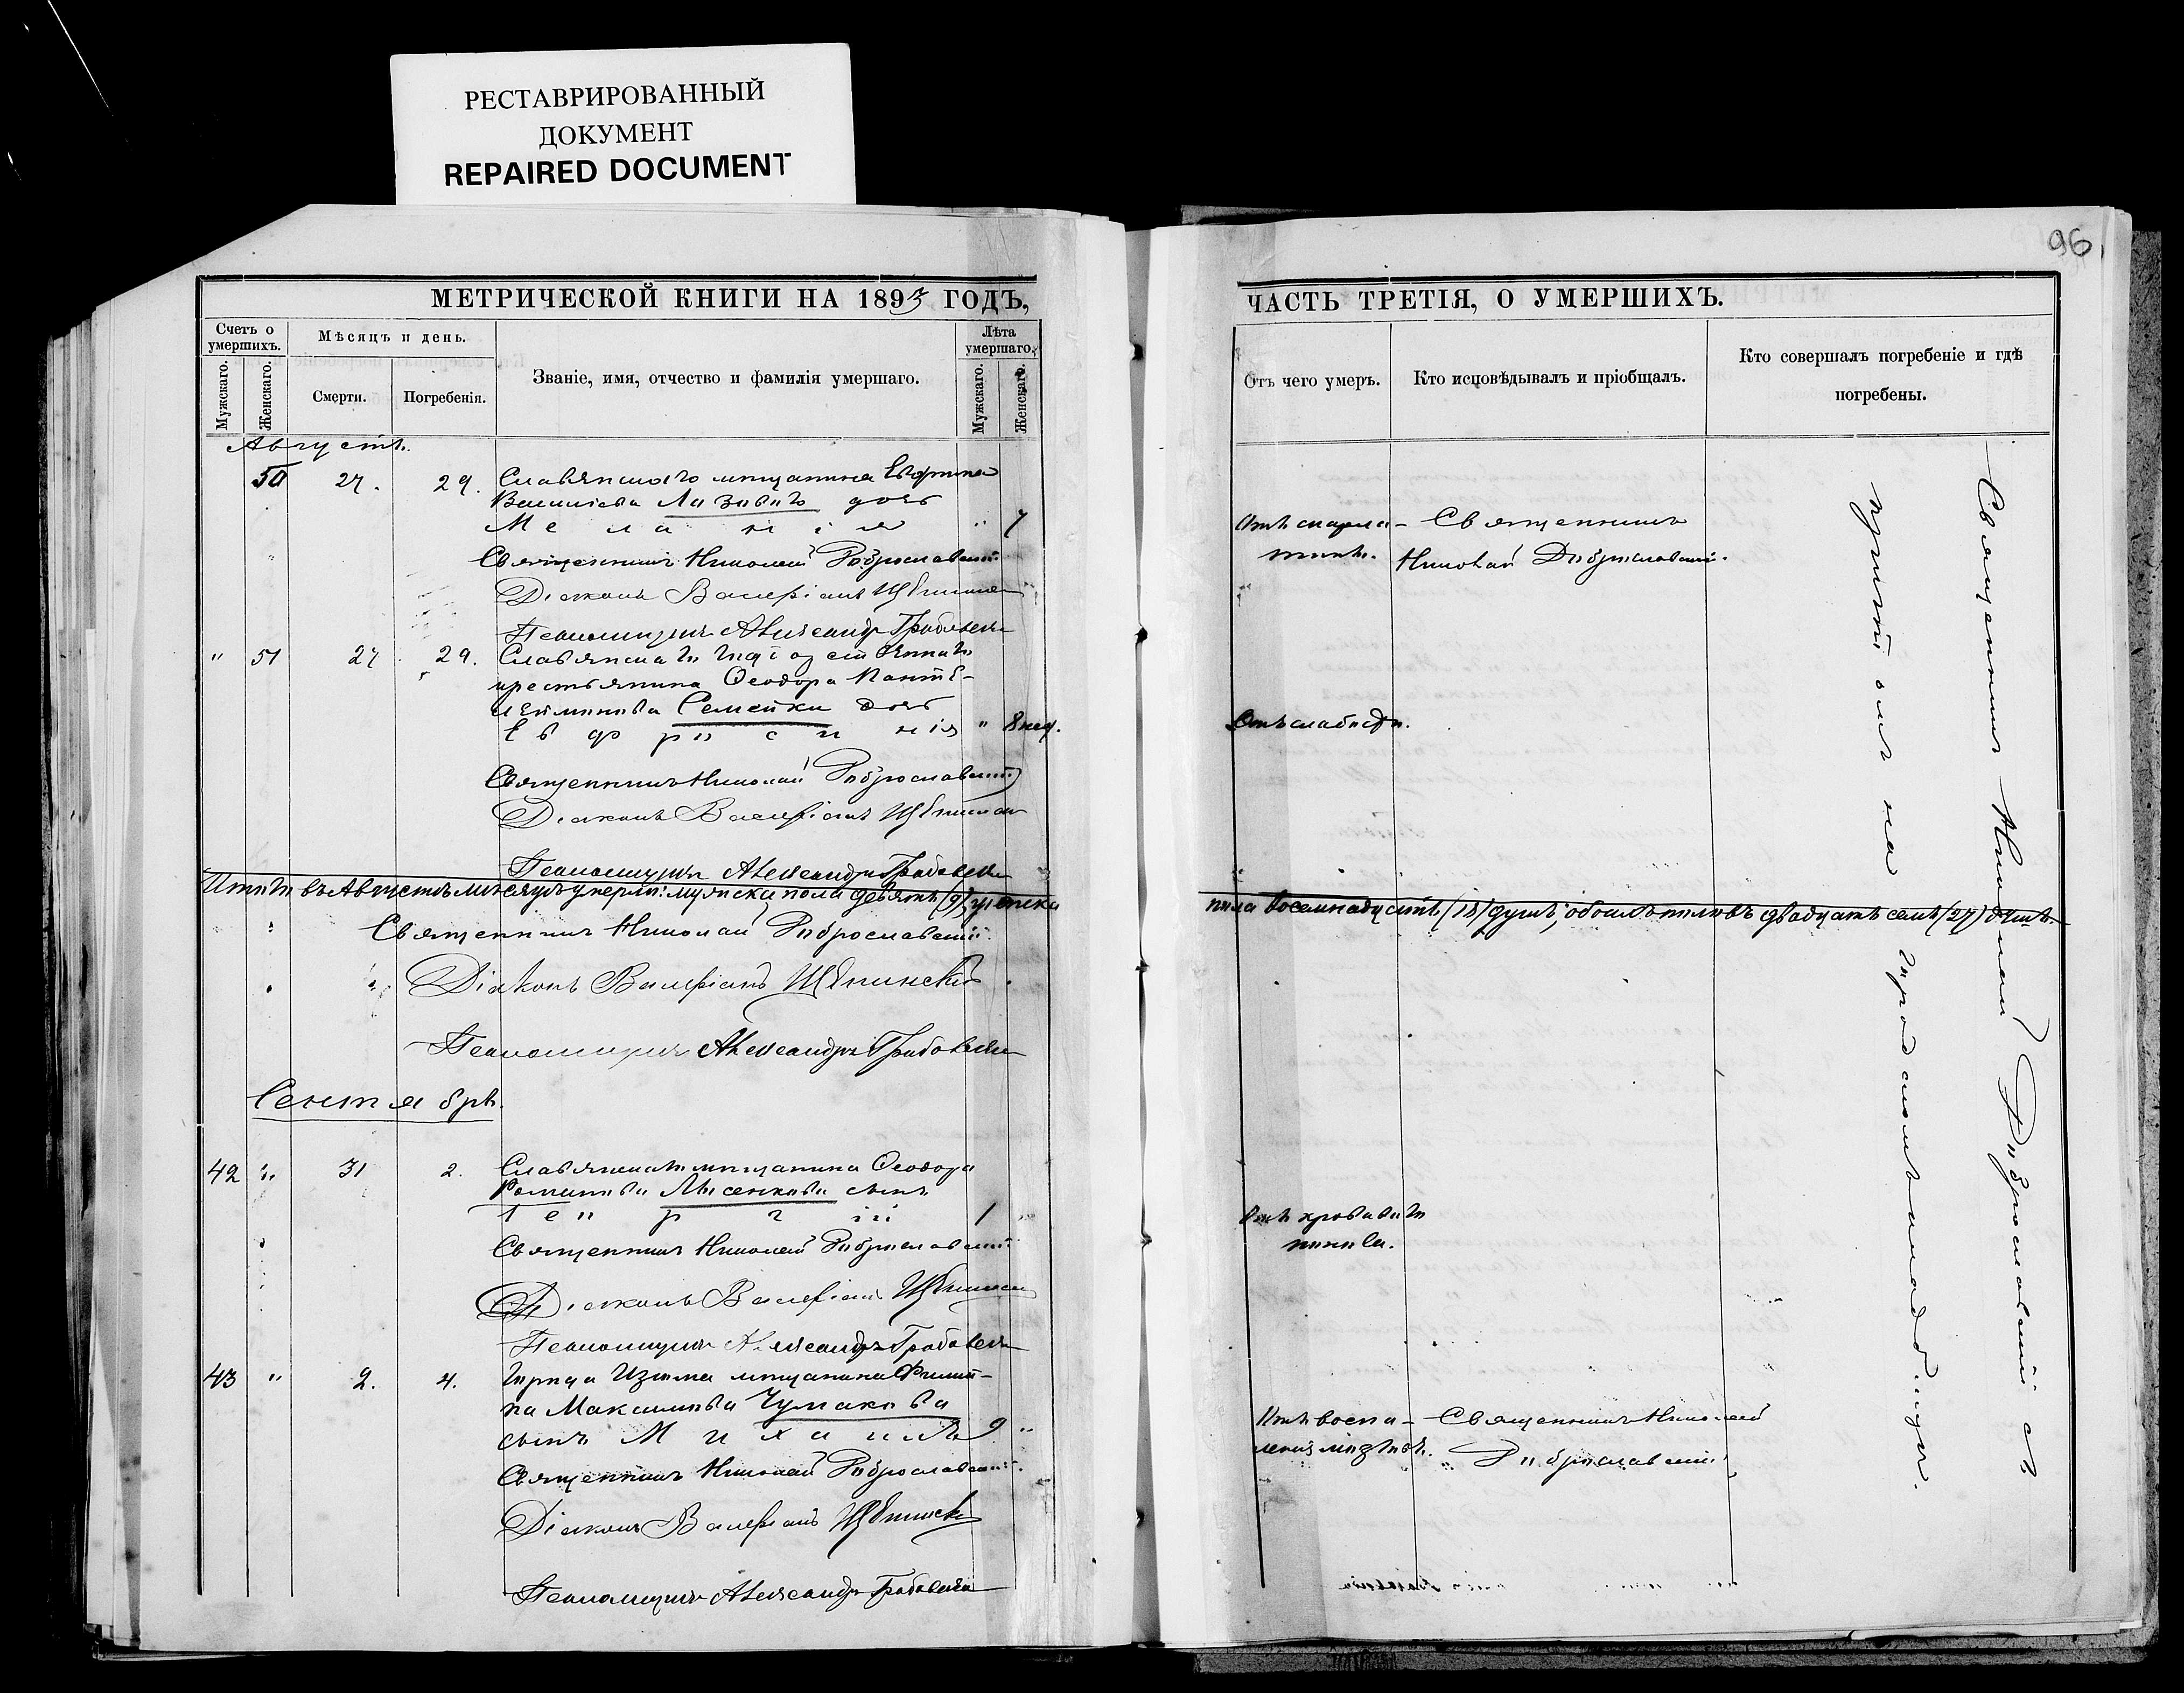 РЕСТАВРИРОВАННЫЙ
ДОКУМЕНТ
REPAIRED DOCUMENT
96
МЕТРИЧЕСКОЙ КНИГИ НА 1893 ГОДЪ,
Счетъ о умершихъ.
Мужскаго.
Женскаго.
Мѣсяцъ и день.
Смерти.
Погребенія.
Званіе, имя, отчество и фамилія умершаго.
Лѣта умершаго.
Мужскаго.
Женскаго.
Августъ.
50 27. 29. Славянскаго мѣщанина
Лазаваго дочь
Меланія " 7
Священникъ Николай Доброславскій
Діаконъ Валеріанъ Щепинскій
Псаломщикъ Александръ Грабовскій
" 51 27 29. Славянска
крестьянина Ѳеодора Панте-
леймонова Семейки дочь
Евфросинія " 8 нед.
Священникъ Николай Доброславскій
Діаконъ Валеріанъ Щепинскій
Псаломщикъ Александръ Грабовскій
Итого въ Августѣ мѣсяцѣ умерло: мужска пола девять (9), женска
Священникъ Николай Доброславскій
Діаконъ Валеріанъ Щепинскій
Псаломщикъ Александръ Грабовскій
Сентябрь.
42 " 31 2. Славянскаго мѣщанина Ѳеодора
Романова Лысенкова сынъ
Георгій 1 "
Священникъ Николай Доброславскій
Діаконъ Валеріанъ Щепинскій
Псаломщикъ Александръ Грабовскій
43 " 2. 4. Города Изюма мѣщанина Филип-
па Максимова Чумакова
сынъ Михаилъ 9 "
Священникъ Николай Доброславскій
Діаконъ Валеріанъ Щепинскій
Псаломщикъ Александръ Грабовскій
ЧАСТЬ ТРЕТІЯ, О УМЕРШИХЪ.
Отъ чего умеръ.
Кто исповѣдывалъ и пріобщалъ.
Кто совершалъ погребеніе и гдѣ погребены.
Отъ скарла-
тины.
Священникъ
Николай Доброславскій.
Отъ слабости.
пола восемнадцать (18) душъ; обоего половъ двадцать семь (27) душъ.
Отъ кроваваго
поноса.
Отъ воспа-
ленія мозговъ.
Священникъ Николай
Доброславскій
Священникъ Николай Доброславскій съ
причтомъ на городскомъ кладбищѣ.